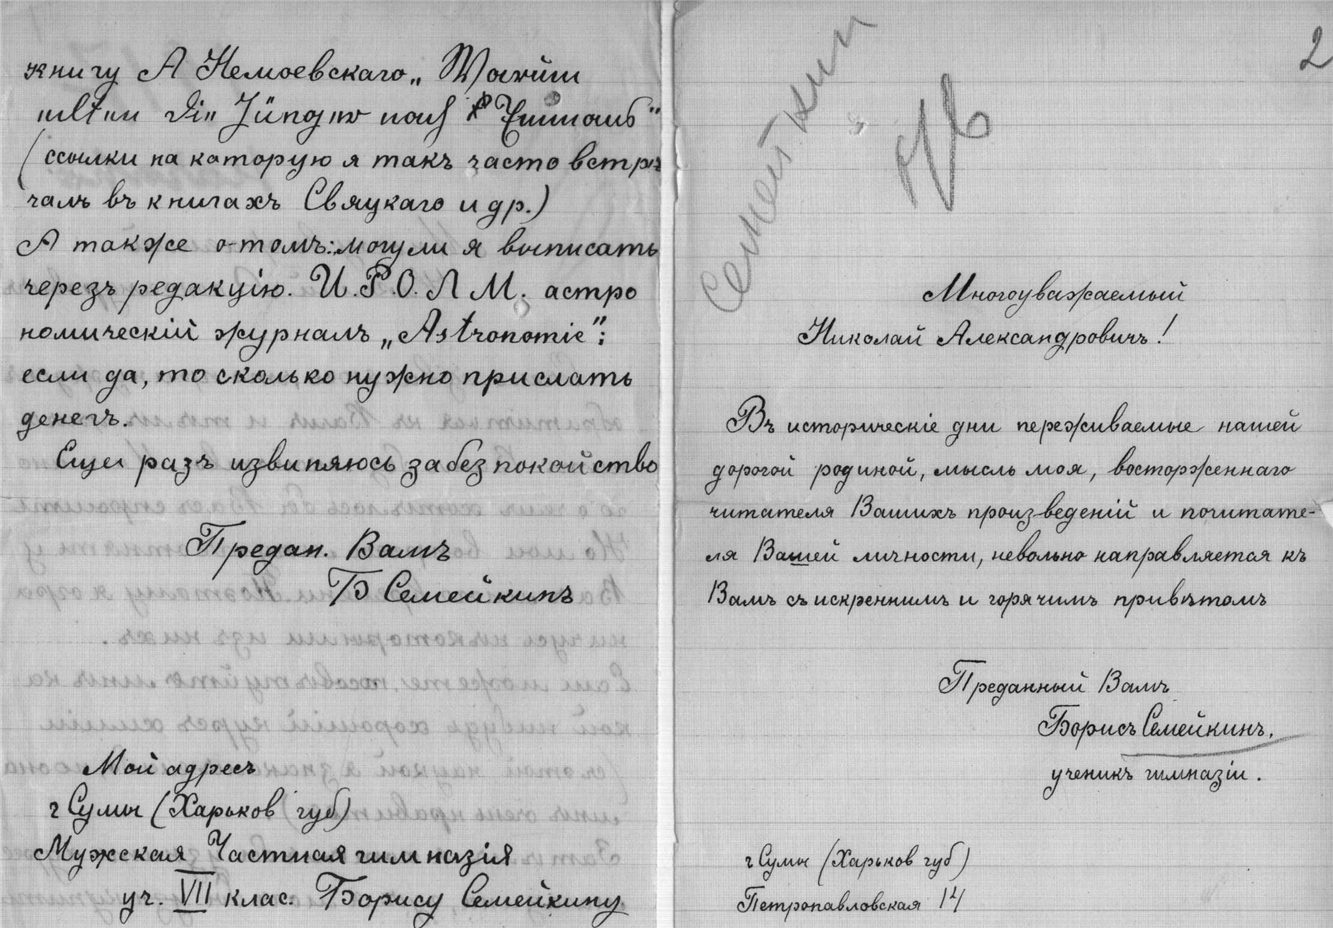 книгу А Немоевскаго „Warum
eilten die Jünger nach Emmaus"
(ссылки на каторую я такъ часто встрѣ
чалъ въ книгахъ Свяцкаго и др.)
А также о томъ: могули я выписать
черезъ редакцію. И.Р.О.Л М. астро
номическій журналъ „Astronomie";
если да, то сколько нужно прислать
денегъ.
Еще разъ извиняюсь за безпокойство
Предан. Вамъ
Б Семейкинъ
Мой адресъ
г Сумы (Харьков губ)
Мужская Частная гимназія
уч. VII клас. Борису Семейкину
2
Семейкин
Многоуважаемый
Николай Александровичъ!
Въ историческіе дни переживаемые нашей
дорогой родиной, мысль моя, восторженнаго
читателя Вашихъ произведеній и почитате-
ля Вашей личности, невольно направляется къ
Вамъ съ искреннимъ и горячимъ привѣтомъ
Преданный Вамъ
Борисъ Семейкинъ,
ученикъ гимназіи.
г Сумы (Харьков губ)
Петропавловская 14